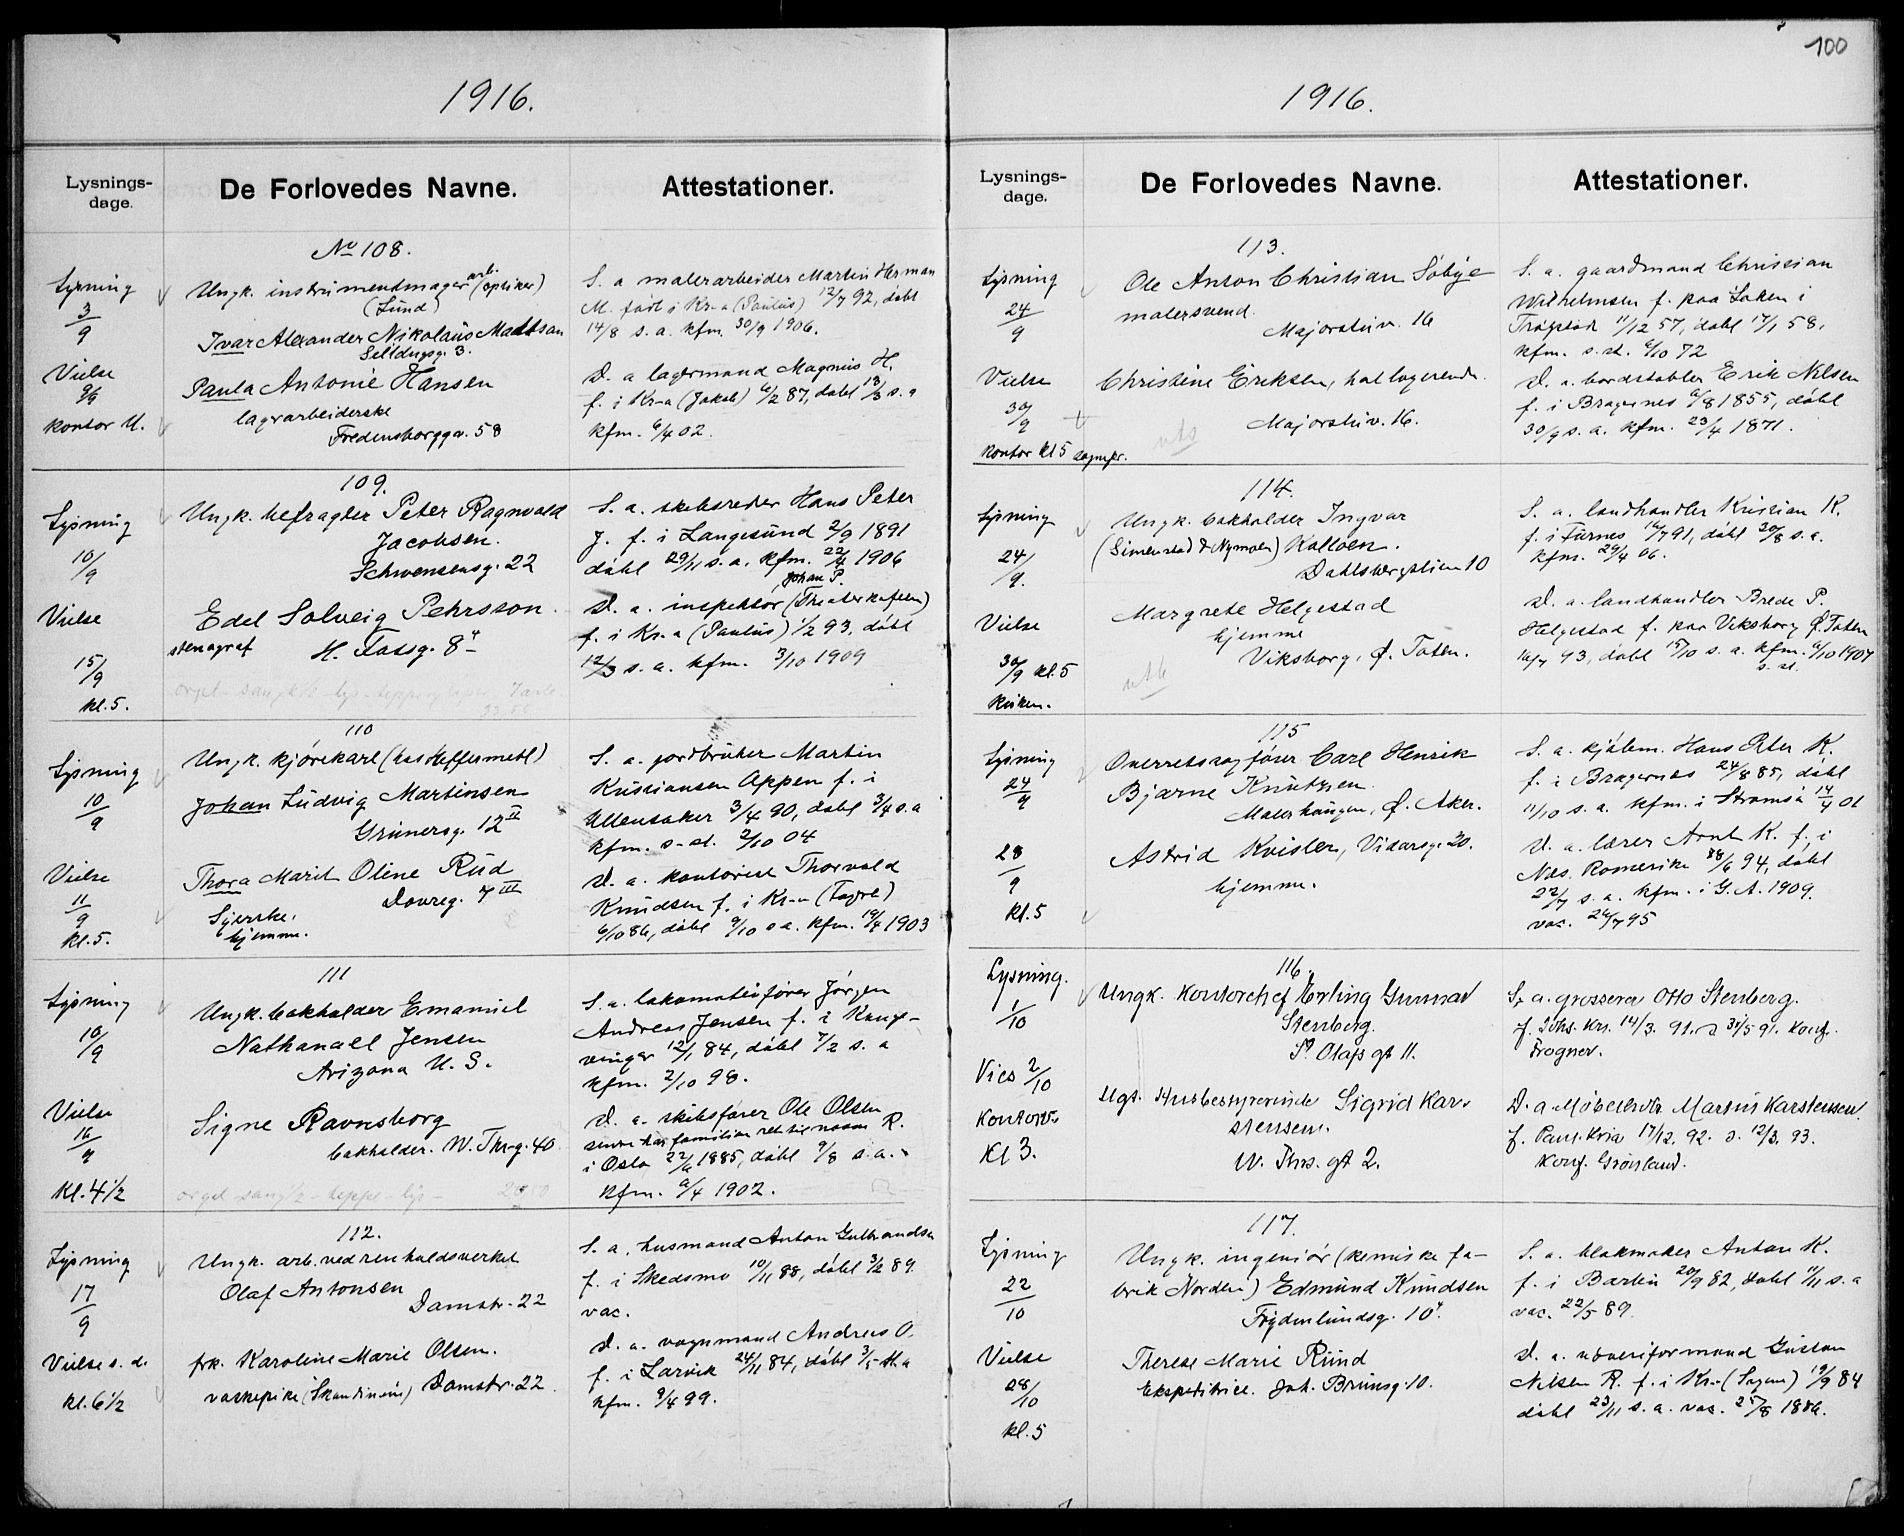 100
1916.
Lysnings-
dage.
De Forlovedes Navne.
Attestationer.
No 108.
Lysning
3/9
Vielse
9/9
kontor U.
Ungk. instrumentmager arb. (optiker)
(Lund)
Ivar Alexander Nikolaus Mattson
3.
Paula Antonie Hansen
lagerarbeiderske
Fredensborggv. 58
S. a malerarbeider Martin Herman
M. født i Kr-a (Paulus) 12/7 92, døbt
14/8 s. a. kfm. 30/9 1906.
D. a lagermand Magnus H.
f. i Kr-a (Jakob) 6/2 87, døbt 13/3 s. a
kfm. 6/4 02.
109.
Lysning
10/9
Vielse
15/9
kl. 5.
Ungk. befragter Peter Ragnvald
Jacobsen.
Schwensensg. 22
Edel Solveig Pehrsson.
stenograf H. Fossg. 8II
S. a. skibsreder Hans Peter
J. f. i Langesund 2/9 1891
døbt 29/11 s. a. kfm. 22/4 1906
Johan P.
D. a. inspektør (Theaterkafeen)
f. i Kr-a (Paulus) 1/2 93, døbt
12/3 s. a. kfm. 3/10 1909
110
Lysning
10/9
Vielse
11/9
kl. 5.
Ungk. kjørekarl (hos Heffermehl)
Johan Ludvig Martinsen
Grünersg. 12II
Thora Marit Oline Rud
Dovreg. 7III
Syerske.
hjemme.
S. a. jordbruker Martin
Kristiansen Appen f. i
Ullensaker 3/4 90, døbt 3/4 s. a
kfm. s-st. 2/10 04
D. a. kontorist Thorvald
Knudsen f. i Kr-a (Fagre)
6/10 86, døbt 9/10 s a. kfm. 19/4 1903
111
Lysning
10/9
Vielse
16/9
kl. 4 1/2
Ungk. bokholder Emanuel
Nathanael Jensen
Arizona U. S.
Signe Ravnsborg
bokholder. W. Thr-g. 40
S. a. lokomotivfører Jørgen
Andreas Jensen f. i Kongs-
vinger 12/1 84, døbt 7/2 s. a
kfm. 2/10 98.
D. a. skibsfører Ole Olsen
senere har familien ret til navn R.
i Oslo 22/6 1885, døbt 9/8 s. a.
kfm. 6/4 1902.
112.
Lysning
17/9
Vielse s. d.
kl. 6 1/2
Ungk. arb. ved renholdsverket
Olaf Antonsen
Damstr. 22
frk. Karoline Marie Olsen.
vaskepike (Skandinavie) Damstr. 22
S. a. husmand Anton Gulbrandsen
f. i Skedsmo 10/11 88, døbt 3/2 89.
vac.
D. a. vognmand Andreas O.
f. i Larvik 24/11 84, døbt 3/5 th. a
kfm. 9/4 99.
1916.
Lysnings-
dage.
De Forlovedes Navne.
Attestationer.
113.
Lysning
24/9
Vielse
30/9
kontor kl 5 sognepr.
Ole Anton Christian Søbye
malersvend.
Majorstuv. 16
Christine Eriksen, hal logerende
Majorstuv. 16.
S. a. gaardmand Christian
Wilhelmsen f. paa Loken i
Trøgstad 11/12 57, døbt 17/1 58,
kfm. s. st. 6/10 72
D. a. bordstabler Erik Nilsen
f. i Bragernes 6/8 1855, døbt
30/9 s. a. kfm. 23/4 1871.
114.
Lysning
24/9.
Vielse
30/9 kl. 5
kirken.
Ungk. bokholder Ingvar
(Simenstad & Nymoen) Kolloen.
Dahlsbergstien 10
Margrete Helgestad
hjemme
Viksborg, Ø. Toten.
S. a. landhandler Kristian K.
f. i Furnes 16/7 91, døbt 30/8 s. a.
kfm. 29/4 06.
D. a. landhandler Brede P.
Helgestad f. paa Viksborg Ø. Toten
16/7 93, døbt 15/10 s. a. kfm. 6/10 1907
s. st.
115
Lysning
24/9
28/9
kl. 5
Overretssagfører Carl Henrik
Bjarne Knutzen
Malerhaugen, Ø. Aker.
Astrid Kvisler, Vidarsg. 20.
hjemme.
S. a. kjøbm. Hans Peter K.
f. i Bragernes 24/8 85, døbt
11/10 s. a. kfm. i Strømsø 14/4 01
D. a. lærer Arnt K. f. i
Nes. Romerike 28/6 94, døbt
22/7 s. a. kfm. i G. A. 1909.
vac. 26/7 95
116.
Lysning.
1/10
Vies 2/10
Kontoret
Kl 3.
Ungk. Kontorchef Erling Gunnar
Stenberg.
St. Olafs gt 11.
Ugt. Husbestyrerinde Sigrid Kar-
stensen.
W. Thrs. gt 2.
S. a. grosserer Otto Stenberg.
f. Johs. Krs. 14/3. 91. d 31/5 91. Konf.
Frogner.
D. a Møbelhdlr Martin Karstensen
f. Paul. Kria 17/12. 92. d. 12/3. 93.
Konf. Grønland.
117.
Lysning
22/10
Vielse
28/10
kl. 5
Ungk. ingeniør (kemiske fa-
brik Norden) Edmund Knudsen
Frydenlundsg. 10I
Therese Marie Rund
Ekspeditrice. Joh. Brunsg. 10.
S. a. blokmaker Anton K.
f. i Barbu 20/9 82, døbt 11/11 s. a
vac. 22/5 89.
D. a. væveriformand Gustav
Nilsen R. f. i Kr-a (Sagene) 19/9 84
døbt 23/11 s. a. vac. 25/8 1886.